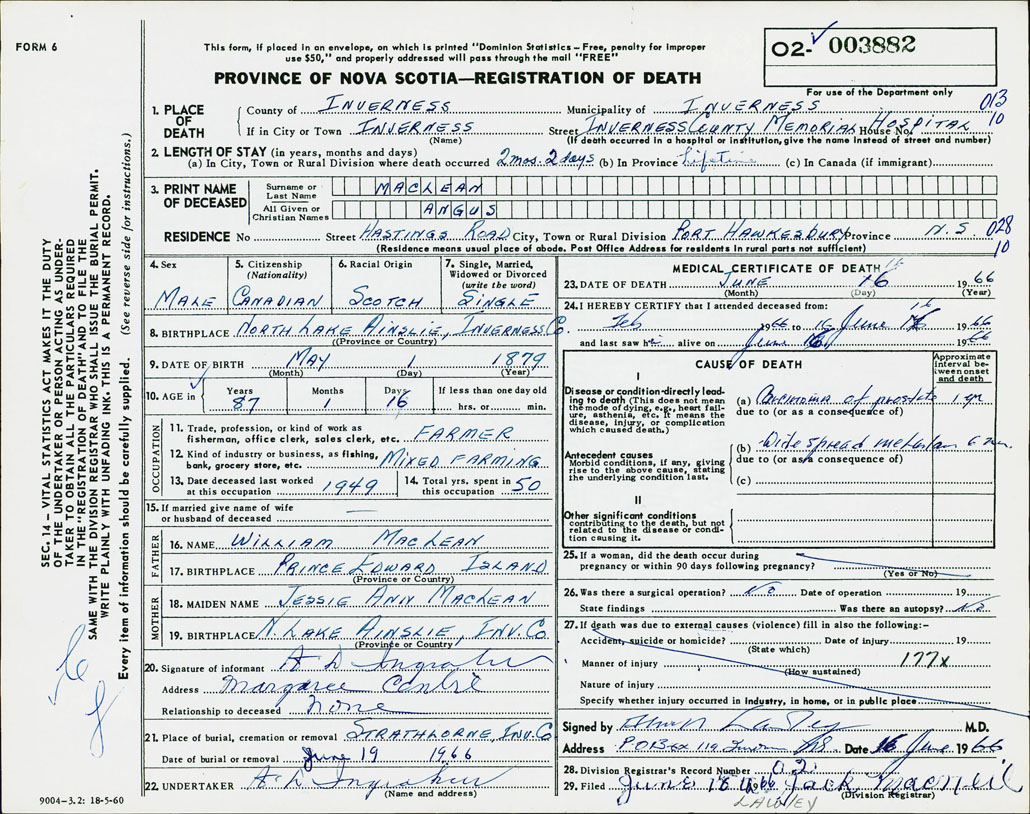 FORM 6
This form, if placed in an envelope, on which is printed "Dominion Statistics – Free, penalty for improper
use $50," and properly addressed will pass through the mail "FREE"
PROVINCE OF NOVA SCOTIA—REGISTRATION OF DEATH
O2- 003882
For use of the Department only
013
10
1. PLACE OF DEATH
County of INVERNESS Municipality of INVERNESS
If in City or Town INVERNESS Street INVERNESS COUNTY MEMORIAL House No. HOSPITAL
(Name) (If death occurred in a hospital or institution, give the name instead of street and number)
2. LENGTH OF STAY (in years, months and days)
(a) In City, Town or Rural Division where death occurred 2 mos. 2 days (b) In Province Lifetime (c) In Canada (if immigrant)
3. PRINT NAME OF DECEASED
Surname or Last Name MACLEAN
All Given or Christian Names ANGUS
RESIDENCE No Street HASTINGS ROAD City, Town or Rural Division PORT HAWKESBURY Province N.S. 028
10
(Residence means usual place of abode. Post Office Address for residents in rural parts not sufficient)
4. Sex MALE
5. Citizenship (Nationality) CANADIAN
6. Racial Origin SCOTCH
7. Single, Married, Widowed or Divorced (write the word) SINGLE
8. BIRTHPLACE NORTH LAKE AINSLIE, INVERNESS Co.
(Province or Country)
9. DATE OF BIRTH MAY 1 1879
(Month) (Day) (Year)
10. AGE in Years 87 Months 1 Days 16 If less than one day old hrs. or min.
OCCUPATION
11. Trade, profession, or kind of work as
fisherman, office clerk, sales clerk, etc. FARMER
12. Kind of industry or business, as fishing,
bank, grocery store, etc. MIXED FARMING
13. Date deceased last worked
at this occupation 1949
14. Total yrs. spent in
this occupation 50
15. If married give name of wife
or husband of deceased —
FATHER
16. NAME WILLIAM MACLEAN
17. BIRTHPLACE PRINCE EDWARD ISLAND
(Province or Country)
MOTHER
18. MAIDEN NAME JESSIE ANN MACLEAN
19. BIRTHPLACE N. LAKE AINSLIE, INV. CO.
(Province or Country)
20. Signature of informant A D Ingraham
Address Margaree Centre
Relationship to deceased None
21. Place of burial, cremation or removal STRATHLORNE, INV. CO
Date of burial or removal June 19 1966
22. UNDERTAKER A D Ingraham
(Name and address)
MEDICAL CERTIFICATE OF DEATH
16
23. DATE OF DEATH JUNE 16 1966
(Month) (Day) (Year)
24. I HEREBY CERTIFY that I attended deceased from:
Feb 1966 to 16 June 1966
and last saw him alive on June 16 1966
CAUSE OF DEATH
Approximate interval between onset and death
I
Disease or condition directly leading to death (This does not mean the mode of dying, e.g., heart failure, asthenia, etc. It means the disease, injury, or complication which caused death.)
(a) Carcinoma of prostate 1 yr
due to (or as a consequence of)
Antecedent causes
Morbid conditions, if any, giving rise to the above cause, stating the underlying condition last.
(b) Wide spread
due to (or as a consequence of)
(c)
II
Other significant conditions
contributing to the death, but not related to the disease or condition causing it.
25. If a woman, did the death occur during
pregnancy or within 90 days following pregnancy?
(Yes or No)
26. Was there a surgical operation? No. Date of operation 19
State findings Was there an autopsy? No
27. If death was due to external causes (violence) fill in also the following:–
Accident, suicide or homicide? Date of injury 19
(State which)
Manner of injury 177x
(How sustained)
Nature of injury
Specify whether injury occurred in industry, in home, or in public place
Signed by M.D.
Address P O Box 119 Date 16 June 1966
28. Division Registrar's Record Number 02
29. Filed June 18 1966 Jack MacNeil
LAWLEY (Division Registrar)
9004–3.2: 18-5-60
SEC. 14 – VITAL STATISTICS ACT MAKES IT THE DUTY
OF THE UNDERTAKER OR PERSON ACTING AS UNDER-
TAKER TO OBTAIN ALL THE PARTICULARS REQUIRED
IN THE "REGISTRATION OF DEATH" AND TO FILE THE
SAME WITH THE DIVISION REGISTRAR WHO SHALL ISSUE THE BURIAL PERMIT.
WRITE PLAINLY WITH UNFADING INK. THIS IS A PERMANENT RECORD.
Every item of information should be carefully supplied. (See reverse side for instructions.)